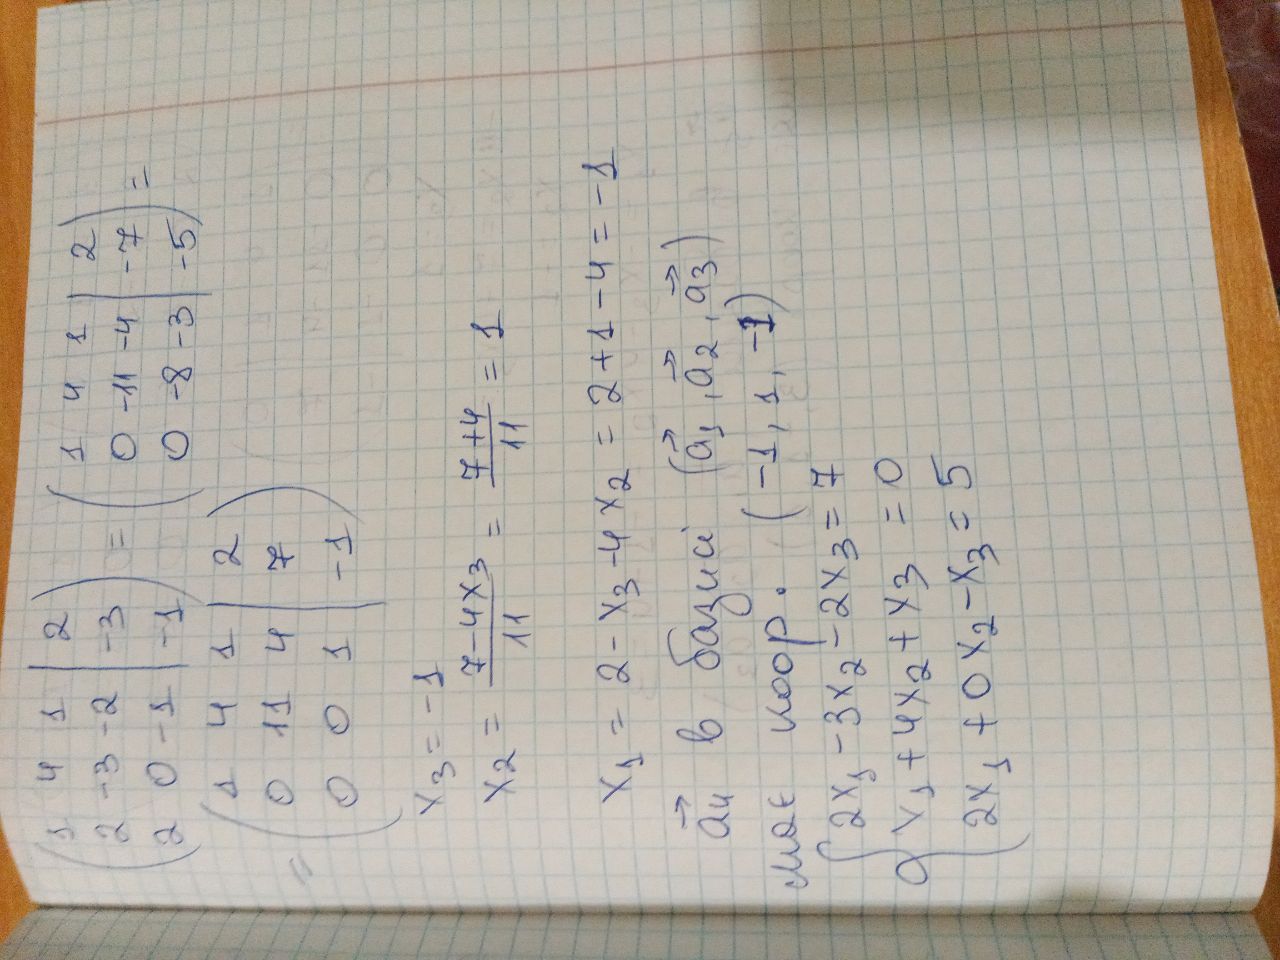 ( 1 4 1 | 2 ) = ( 1 4 1 | 2 ) =
2 -3 -2 | -3 0 -11 -4 | -7
2 0 -1 | -1 0 -8 -3 | -5
= ( 1 4 1 | 2 )
0 11 4 | 7
0 0 1 | -1
x3 = -1
x2 = (7-4x3)/11 = (7+4)/11 = 1
x1 = 2 - x3 - 4x2 = 2+1-4 = -1
a⃗4 в базисі (a⃗1, a⃗2, a⃗3)
має коор. (-1, 1, -1)
{ 2x1 - 3x2 - 2x3 = 7
x1 + 4x2 + x3 = 0
2x1 + 0x2 - x3 = 5